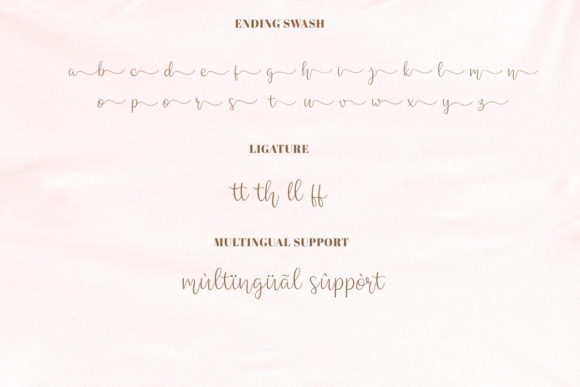 ENDING SWASH
a b c d e f g h i j k l m n
o p o r s t u v w x y z
LIGATURE
tt th ll ff
MULTINGUAL SUPPORT
mùltïngüãl sûppòrt